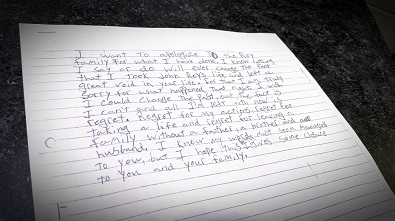 I want to apologise to the Roy
family for what I have done. I know nothing
I say or do will ever change the fact
that I took John Roy's life and left a
great void in your life. For that I am truly
sorry for what happened that night. I wish
I could change the past but the fact is
I can't and all I'm left with now is
regret. Regret for my actions, regret for
taking a life and regret for leaving a
family without a father, a brother and a
husband. I know my words may seem
to you, but I hope this gives some closure
to you and your family.